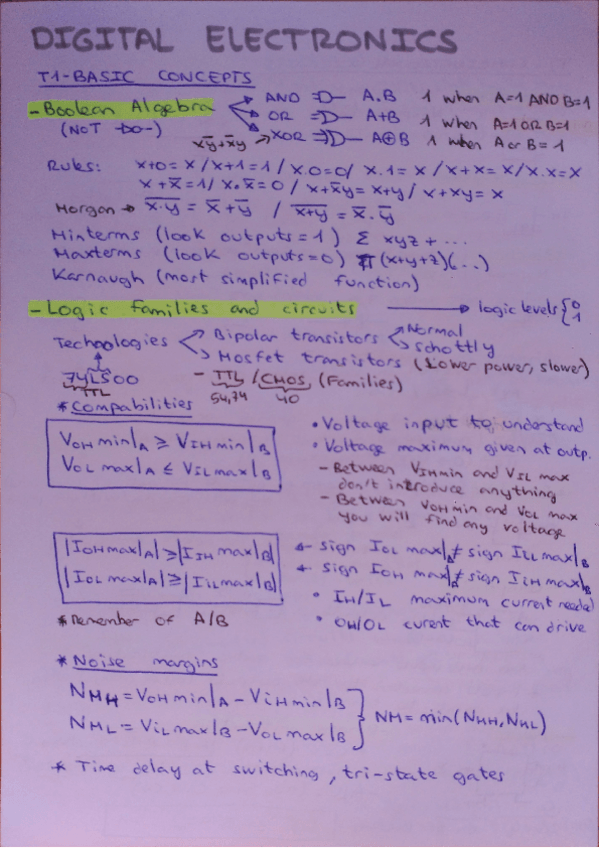 DIGITAL ELECTRONICS
T1-BASIC CONCEPTS
- Boolean Algebra → AND A.B 1 when A=1 AND B=1
(NOT -▷o-) → OR A+B 1 when A=1 OR B=1
x̄y+x̄y → XOR A⊕B 1 when A or B = 1
Rules: x+0=x / x+1=1 / x.0=0 / x.1=x / x+x=x / x.x=x
x+x̄=1 / x.x̄=0 / x+x̄y=x+y / x+xy=x
Morgan → \overline{x.y} = x̄+ȳ / \overline{x+y} = x̄.ȳ
Minterms (look outputs=1) Σ xyz + ...
Maxterms (look outputs=0) π (x+y+z)(...)
Karnaugh (most simplified function)
- Logic families and circuits → logic levels { 0 1
Technologies → Bipolar transistors → Normal
→ Schottly
→ Mosfet transistors (Lower power, slower)
74LS00 - TTL / CMOS (Families)
TTL 54,74 40
* Compabilities
VOH min|A ≥ VIH min|B
VOL max|A ≤ VIL max|B
• Voltage input to understand
• Voltage maximum given at outp.
- Between VIHmin and VIL max
don't introduce anything
- Between VOHmin and VOL max
you will find any voltage
|IOHmax|A| ≥ |IIH max|B|
|IOL max|A| ≥ |IIL max|B|
← sign IOL max|A ≠ sign IIL max|B
← sign IOH max|A ≠ sign IIH max|B
• IH/IL maximum current needed
• OH/OL curent that can drive
* Remember of A/B
* Noise margins
NMH = VOH min|A - ViH min|B
NML = ViL max|B - VOL max|B
} NM = min(NMH, NML)
* Time delay at switching, tri-state gates